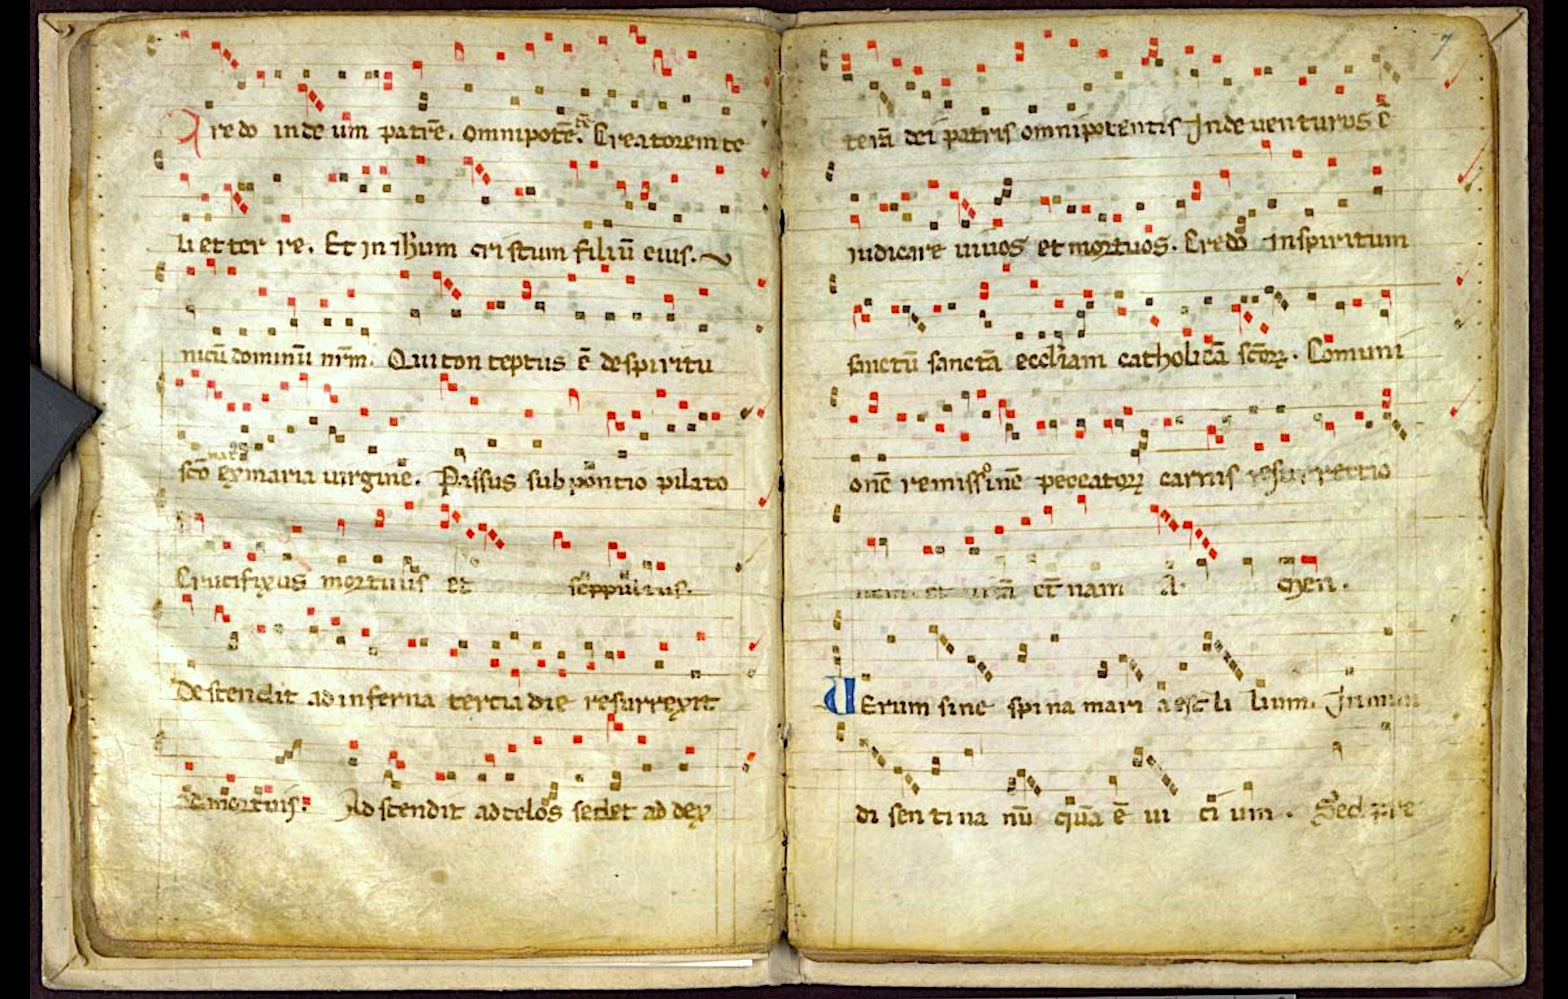 Credo inde um patrē. omnipotē. Creatorem ce
li et ter re. Et in ihum cristum filiū eius.
nicū dominū nrm. Qui con ceptus ē de spiritu
scō ex maria uirgine. Passus sub poncio pilato
Crucifixus mortuus et seppultus.
Descendit ad inferna tercia die resurrexit
a mortuis. Ad scendit ad celos sedet ad dex
7
terā dei patris omnipotentis Inde uenturus ē
iudicare uiuos et mortuos. Credo in spiritum
sanctū sanctā eccliam catholicā scōrꝝ. Comuni
onē remissionē peccatorꝝ carnis resurrectio
et nam A. men.
Uerum sine spina mari a est li lium. In mun
di sen ti na nū quā ē ui ci um. Sed pre